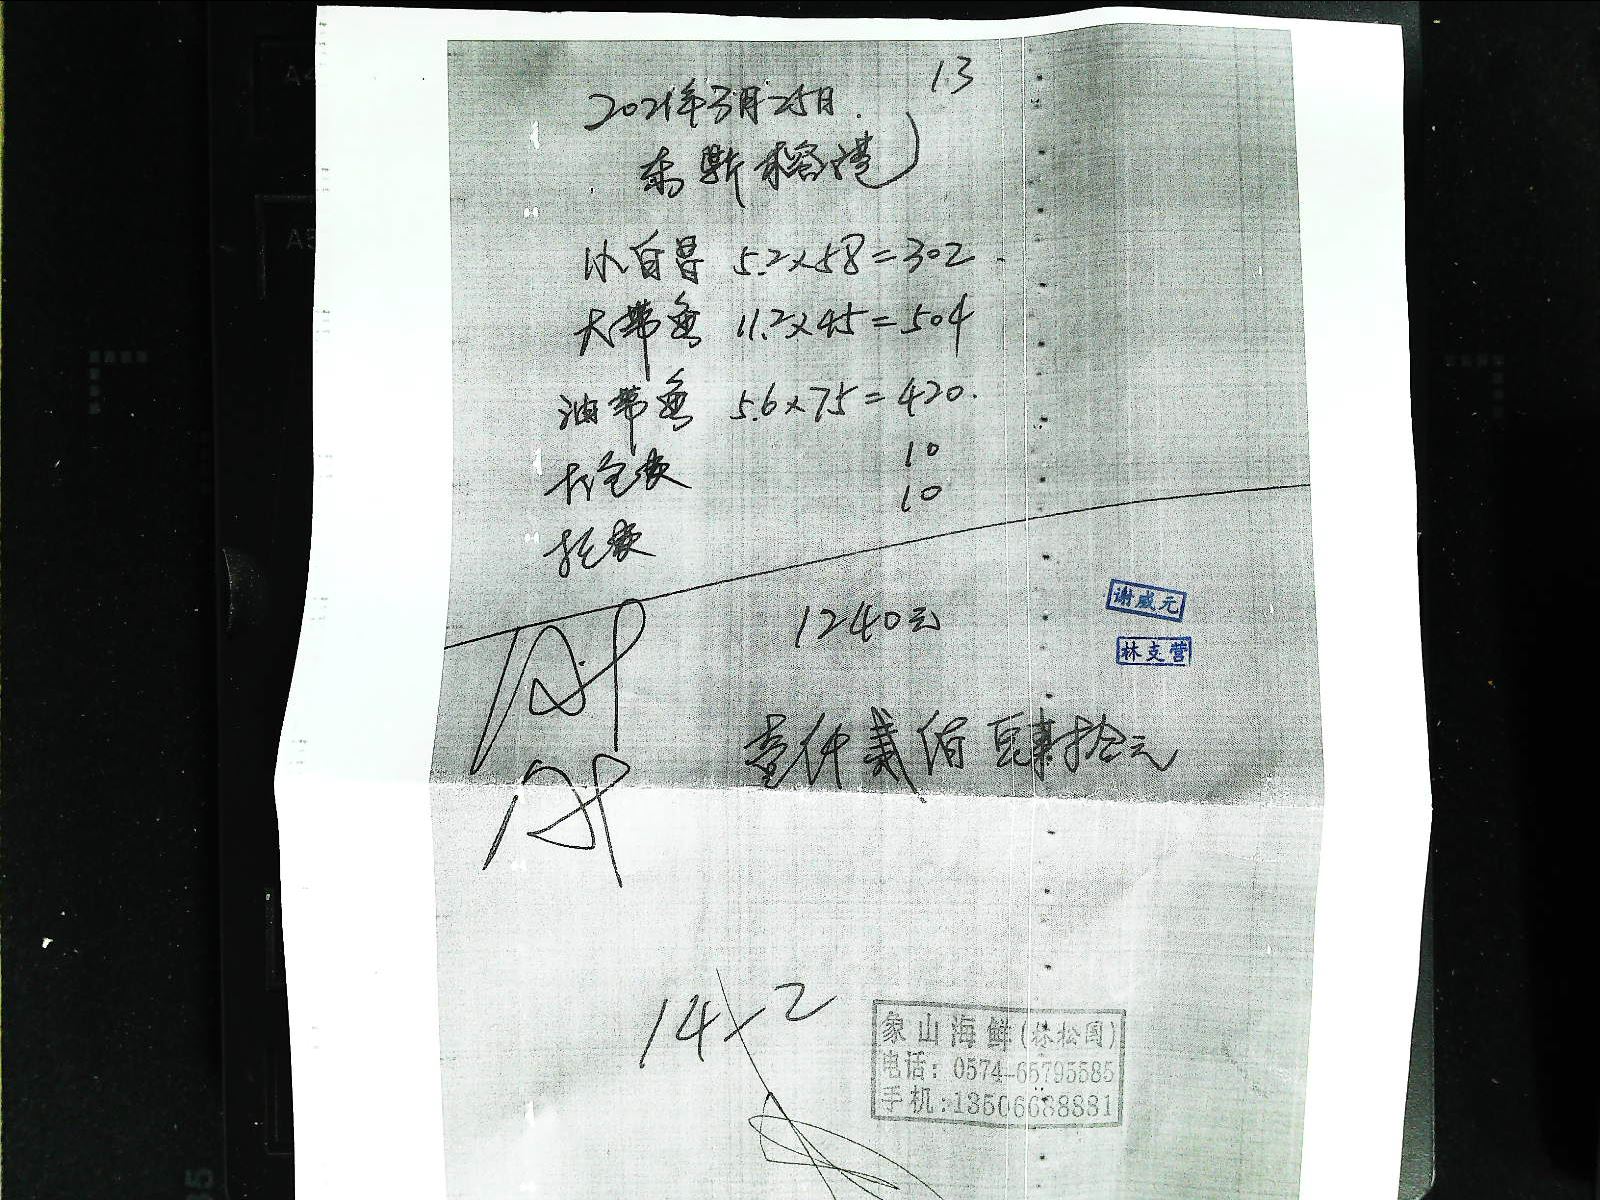 13
2021年3月25日.
东斯榕港
小白昌 5.2×58=302
大带鱼 11.2×45=504
油带鱼 5.6×75=420.
打包费 10
托费 10
1240元
谢威元
林支营
壹仟贰佰肆拾元
14×2
象山海鲜(林松国)
电话: 0574-65795585
手机:13506688881